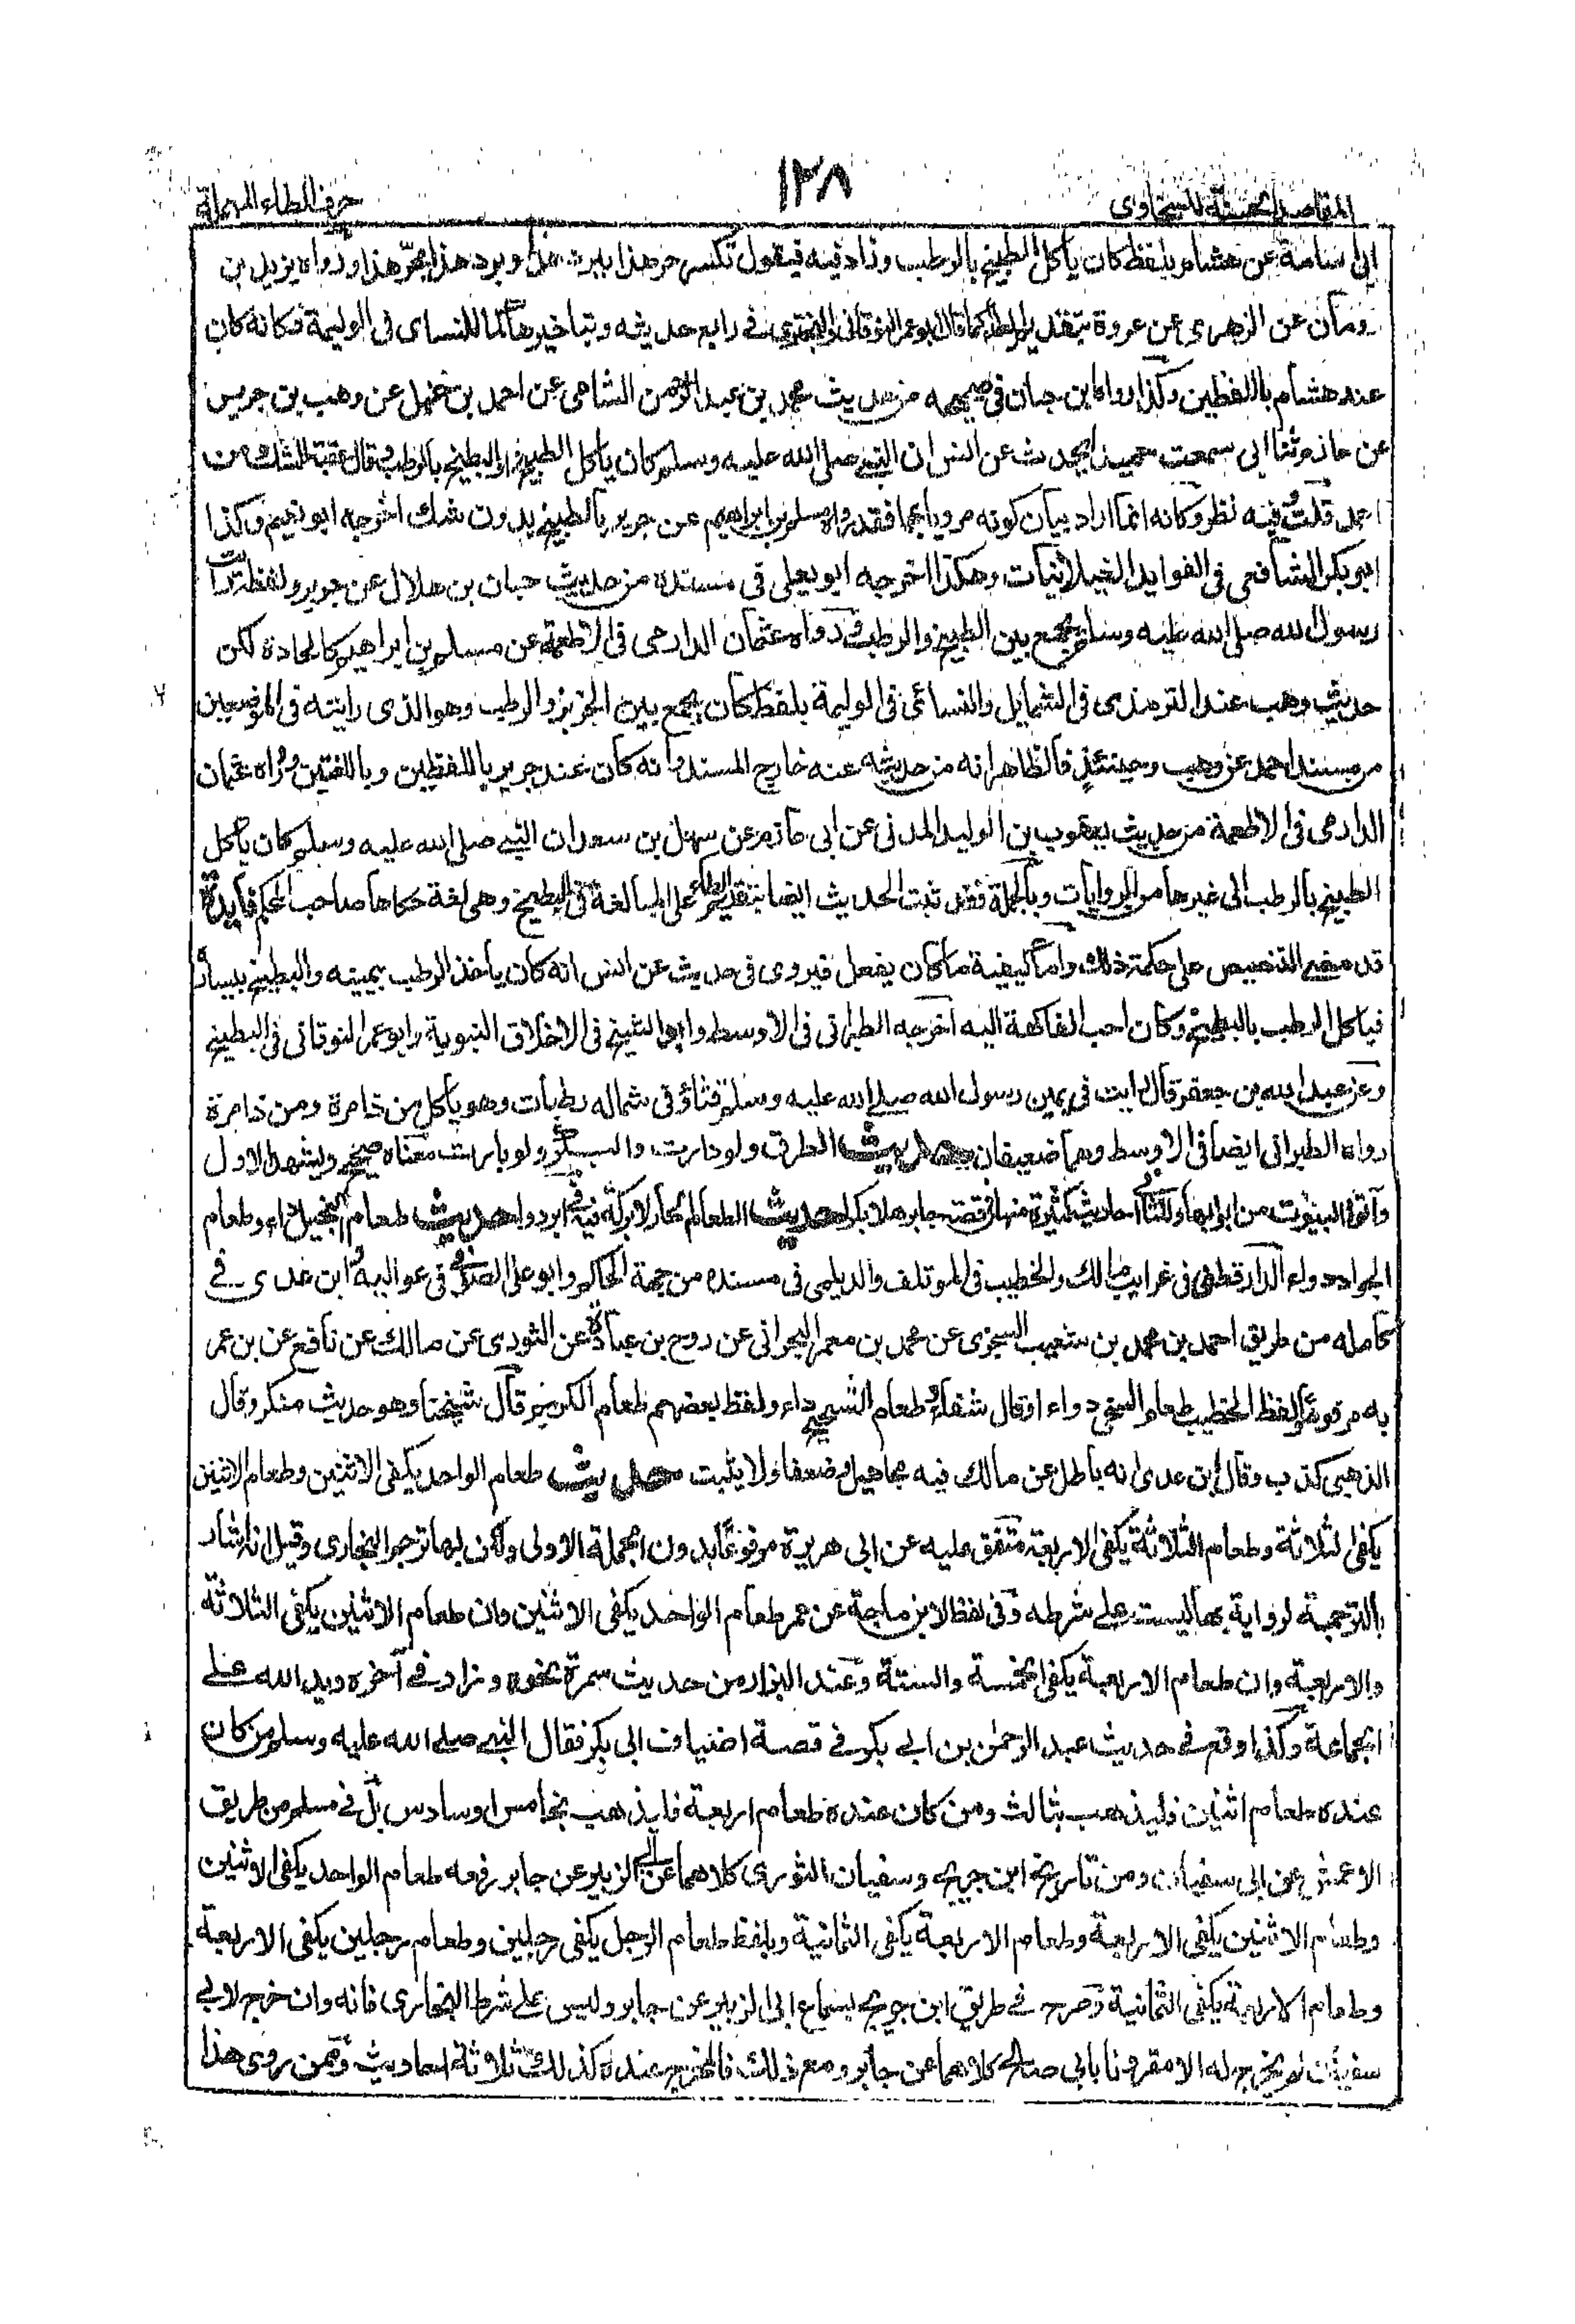 المقاصد الحسنة للسخاوى
١٢٨
حرف الطاء المهملة
ابى سامة عن هشام بلفظ كان ياكل الطبيخ بالرطب وزاد فيه فيقول نكسر حر هذا ببرد هذا وبرد هذا بحر هذا ورواه يزيد بن
رومان عن الزهرى عن عروة بتقديم الطاء كما قال ابو عمر النوقانى فى رابع حديثه وبتاخيرها كما للنساى فى الوليمة فكانه كان
عند هشام باللفظين وكذا رواه ابن حبان فى صحيحه من حديث محمد بن عبد الرحمن الشامى عن احمد بن حنبل عن وهب بن جرير
عن حازم ثنا ابى سمعت حميدا يحدث عن انس ان النبي صلى الله عليه وسلم كان ياكل الطبيخ او البطيخ بالرطب وقال عقبه الشك من
احمد قلت فيه نظر وكانه انما اراد بيان كونه مرويا بهما فقد رواه مسلم بن ابراهيم عن جرير بالطبيخ بدون شك اخرجه ابو نعيم وكذا
ابو بكر الشافعى فى الفوايد الغيلانيات وهكذا اخرجه ابو يعلى فى مسنده من حديث حبان بن هلال عن جرير ولفظه رأيت
رسول الله صلى الله عليه وسلم يجمع بين الطبيخ والرطب ورواه عثمان الدارمى فى الاطعمة عن مسلم بن ابراهيم كالجادة لكن
حديث وهب عند الترمذى فى الشمايل والنسائى فى الوليمة بلفظ كان يجمع بين الخربز والرطب وهو الذى رايته فى الموضعين
من مسند احمد عن وهب وحينئذ فالظاهر انه من حديثه عنه خارج المسند وانه كان عند جرير باللفظين وباللفتين ورواه عثمان
الدارمى فى الاطعمة من حديث يعقوب بن الوليد المدنى عن ابى حازم عن سهل بن سعد ان النبي صلى الله عليه وسلم كان ياكل
الطبيخ بالرطب الى غيرها من الروايات وبالجملة فقد ثبت الحديث ايضا بتقديم الطاء على اللغة فى البطيخ وهى لغة حكاها صاحب المحكم فايدة
قد مضى التنصيص على حكمة ذلك واما كيفية ما كان يفعل فيروى فى حديث عن انس انه كان ياخذ الرطب بيمينه والبطيخ بيساره
فياكل الرطب بالبطيخ وكان احب الفاكهة اليه اخرجه الطبرانى فى الاوسط وابو الشيخ فى الاخلاق النبوية وابو عمر النوقانى فى البطيخ
وعن عبد الله بن جعفر قال رايت فى يمين رسول الله صلى الله عليه وسلم قثاء وفى شماله رطبات وهو ياكل من ذا مرة ومن ذا مرة
رواه الطبرانى ايضا فى الاوسط وهما ضعيفان حديث الطرق ولو دارت والبكر ولو بارت معناه صحيح ويشهد للاول
وآتوا البيوت من ابوابها وللثانى احاديث كثيرة منها فى قصة جابر هلا بكرا حديث الطعام الحار لا بركة فيه فى ابردوا حديث طعام البخيل داء وطعام
الجواد دواء الدارقطنى فى غرايب مالك والخطيب فى المؤتلف والديلمى فى مسنده من جهة الحاكم وابو على الصدفى فى عواليه وابن عدى فى
كامله من طريق احمد بن محمد بن شعيب السجزى عن محمد بن معمر البحرانى عن روح بن عبادة عن الثورى عن مالك عن نافع عن بن عمر
به مرفوعا ولفظ الخطيب طعام السخى دواء او قال شفاء وطعام الشحيح داء ولفظ بعضهم طعام الكريم قال شيخنا وهو حديث منكر وقال
الذهبى كذب وقال ابن عدى انه باطل عن مالك فيه مجاهيل وضعفاء ولا يثبت حديث طعام الواحد يكفى الاثنين وطعام الاثنين
يكفى الثلاثة وطعام الثلاثة يكفى الاربعة متفق عليه عن ابى هريرة مرفوعا بدون الجملة الاولى ولكن بها ترجم البخارى وقيل انه اشار
بالترجمة لرواية بها ليست على شرطه وفى لفظ لابن ماجة عن عمر طعام الواحد يكفى الاثنين وان طعام الاثنين يكفى الثلاثة
والاربعة وان طعام الاربعة يكفى الخمسة والستة وعند البزار من حديث سمرة نحوه وزاد فى آخره ويد الله على
الجماعة وكذا وقع فى حديث عبد الرحمن بن ابى بكر فى قصة اضياف ابى بكر فقال النبي صلى الله عليه وسلم من كان
عنده طعام اثنين فليذهب بثالث ومن كان عنده طعام اربعة فليذهب بخامس او سادس بل فى مسلم من طريق
الاعمش عن ابى سفيان ومن ابن جريج وسفيان الثورى كلاهما عن ابى الزبير عن جابر رفعه طعام الواحد يكفى الاثنين
وطعام الاثنين يكفى الاربعة وطعام الاربعة يكفى الثمانية وبلفظ طعام الرجل يكفى رجلين وطعام رجلين يكفى الاربعة
وطعام الاربعة يكفى الثمانية وصرح فى طريق ابن جريج بسماع ابى الزبير عن جابر وليس على شرط البخارى فانه وان خرج لابى
سفيان لم يخرج له الا مقرونا بابى صالح كلاهما عن جابر ومع ذلك فالمخرج عنده كذلك ثلاثة احاديث وممن روى هذا